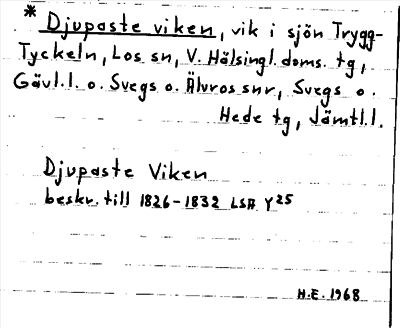 * Djupaste viken, vik i sjön Trygg-
Tyckeln, Los sn, V. Hälsingl. doms. tg,
Gävl.l. o. Svegs o. Älvros snr, Svegs o.
Hede tg, Jämtl.l.
Djupaste Viken
beskr. till 1826-1832 LSA Y25
H.E. 1968